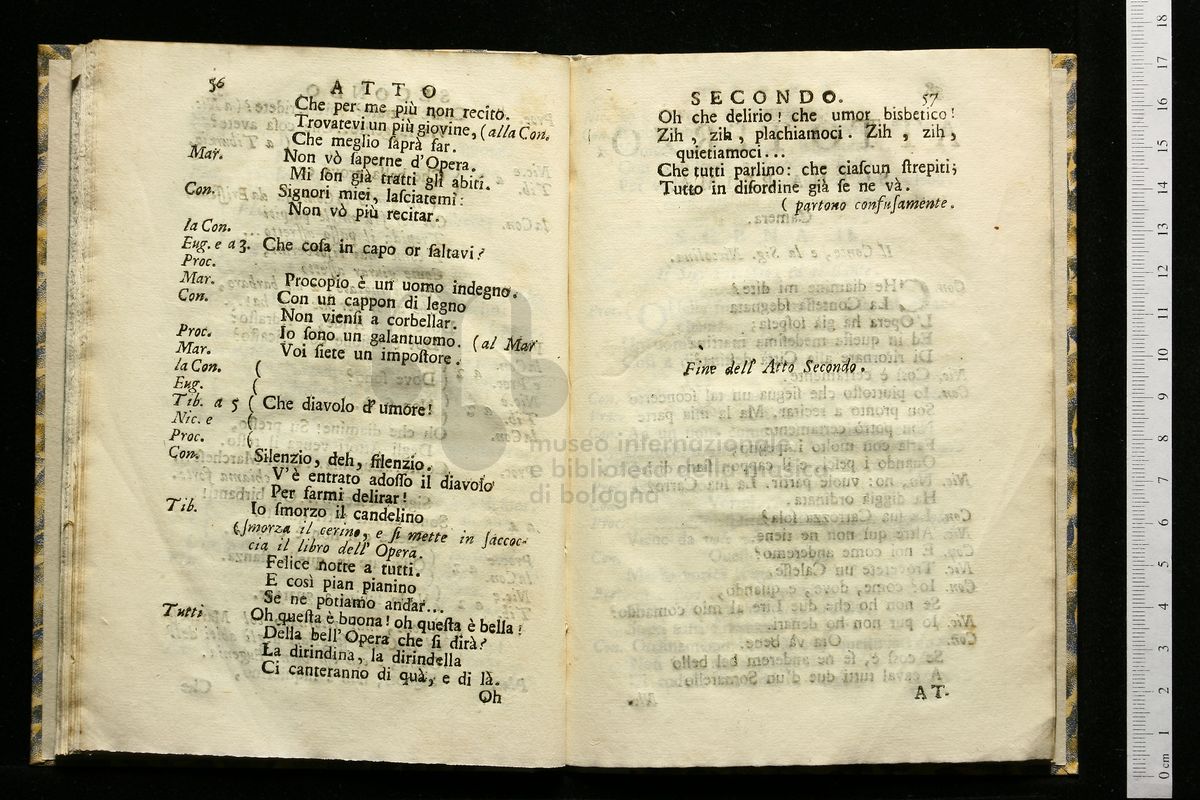 56 ATTO
Che per me più non recito.
Trovatevi un più giovine, (alla Con.
Che meglio ſaprà far.
Mar. Non vò ſaperne d'Opera.
Mi ſon già tratti gli abiti.
Con. Signori miei, laſciatemi:
Non vò più recitar.
la Con.
Eug. e a 3. Che coſa in capo or ſaltavi?
Proc.
Mar. Procopio è un uomo indegno.
Con. Con un cappon di legno
Non vienſi a corbellar.
Proc. Io ſono un galantuomo. (al Mar
Mar. Voi ſiete un impoſtore.
la Con. (
Eug. (
Tib. a 5 ( Che diavolo d'umore!
Nic. e (
Proc. (
Con. Silenzio, deh, ſilenzio.
V'è entrato adoſſo il diavolo
Per farmi delirar!
Tib. Io ſmorzo il candelino
(ſmorza il cerino, e ſi mette in ſaccoc-
cia il libro dell' Opera.
Felice notte a tutti.
E così pian pianino
Se ne potiamo andar...
Tutti Oh queſta è buona! oh queſta è bella!
Della bell' Opera che ſi dirà?
La dirindina, la dirindella
Ci canteranno di quà, e di là.
Oh
SECONDO. 57
Oh che delirio! che umor bisbetico!
Zih, zih, plachiamoci. Zih, zih,
quietiamoci...
Che tutti parlino: che ciaſcun ſtrepiti;
Tutto in diſordine già ſe ne và.
( partono confuſamente.
Fine dell' Atto Secondo.
AT-
museo internazionale
e biblioteca della musica
di bologna
0 cm 1 2 3 4 5 6 7 8 9 10 11 12 13 14 15 16 17 18